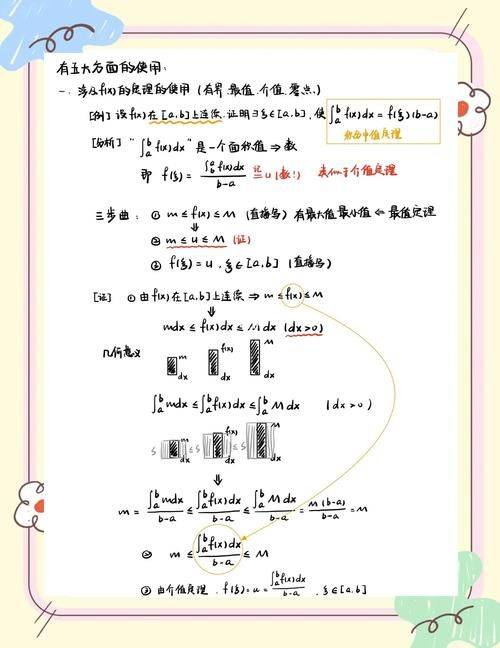 有五大方面的使用:
一. 涉及f(x)的定理的使用 (有界.最值.介值.零点.)
[例] 设f(x)在[a,b]上连续. 证明∃ξ∈[a,b], 使 ∫ₐᵇ f(x)dx = f(ξ)(b-a)
积分中值定理
[分析] "∫ₐᵇ f(x)dx" 是一个面积值 ⇒ 数
即 f(ξ) = ∫ₐᵇ f(x)dx / b-a 记 = u (数!) 类似于介值定理
三步曲: ① m ≤ f(x) ≤ M (直接写) 有最大值 最小值 ⇐ 最值定理
⇓
② m ≤ u ≤ M (证)
③ f(ξ) = u, ξ∈[a,b] (直接写)
[证] ① 由f(x)在[a,b]上连续 ⇒ m ≤ f(x) ≤ M
⇓
mdx ≤ f(x)dx ≤ Mdx (dx>0)
几何意义 m f(x) M
dx dx dx
∫ₐᵇ mdx ≤ ∫ₐᵇ f(x)dx ≤ ∫ₐᵇ M dx (dx>0)
S m ≤ S f(x) ≤ S M
dx dx dx
⇓
m = ∫ₐᵇ mdx / b-a ≤ ∫ₐᵇ f(x)dx / b-a ≤ ∫ₐᵇ M dx / b-a = M(b-a) / b-a = M
② m ≤ ∫ₐᵇ f(x)dx / b-a ≤ M
③ 由介值定理. f(ξ) = u = ∫ₐᵇ f(x)dx / b-a . ξ∈[a,b]